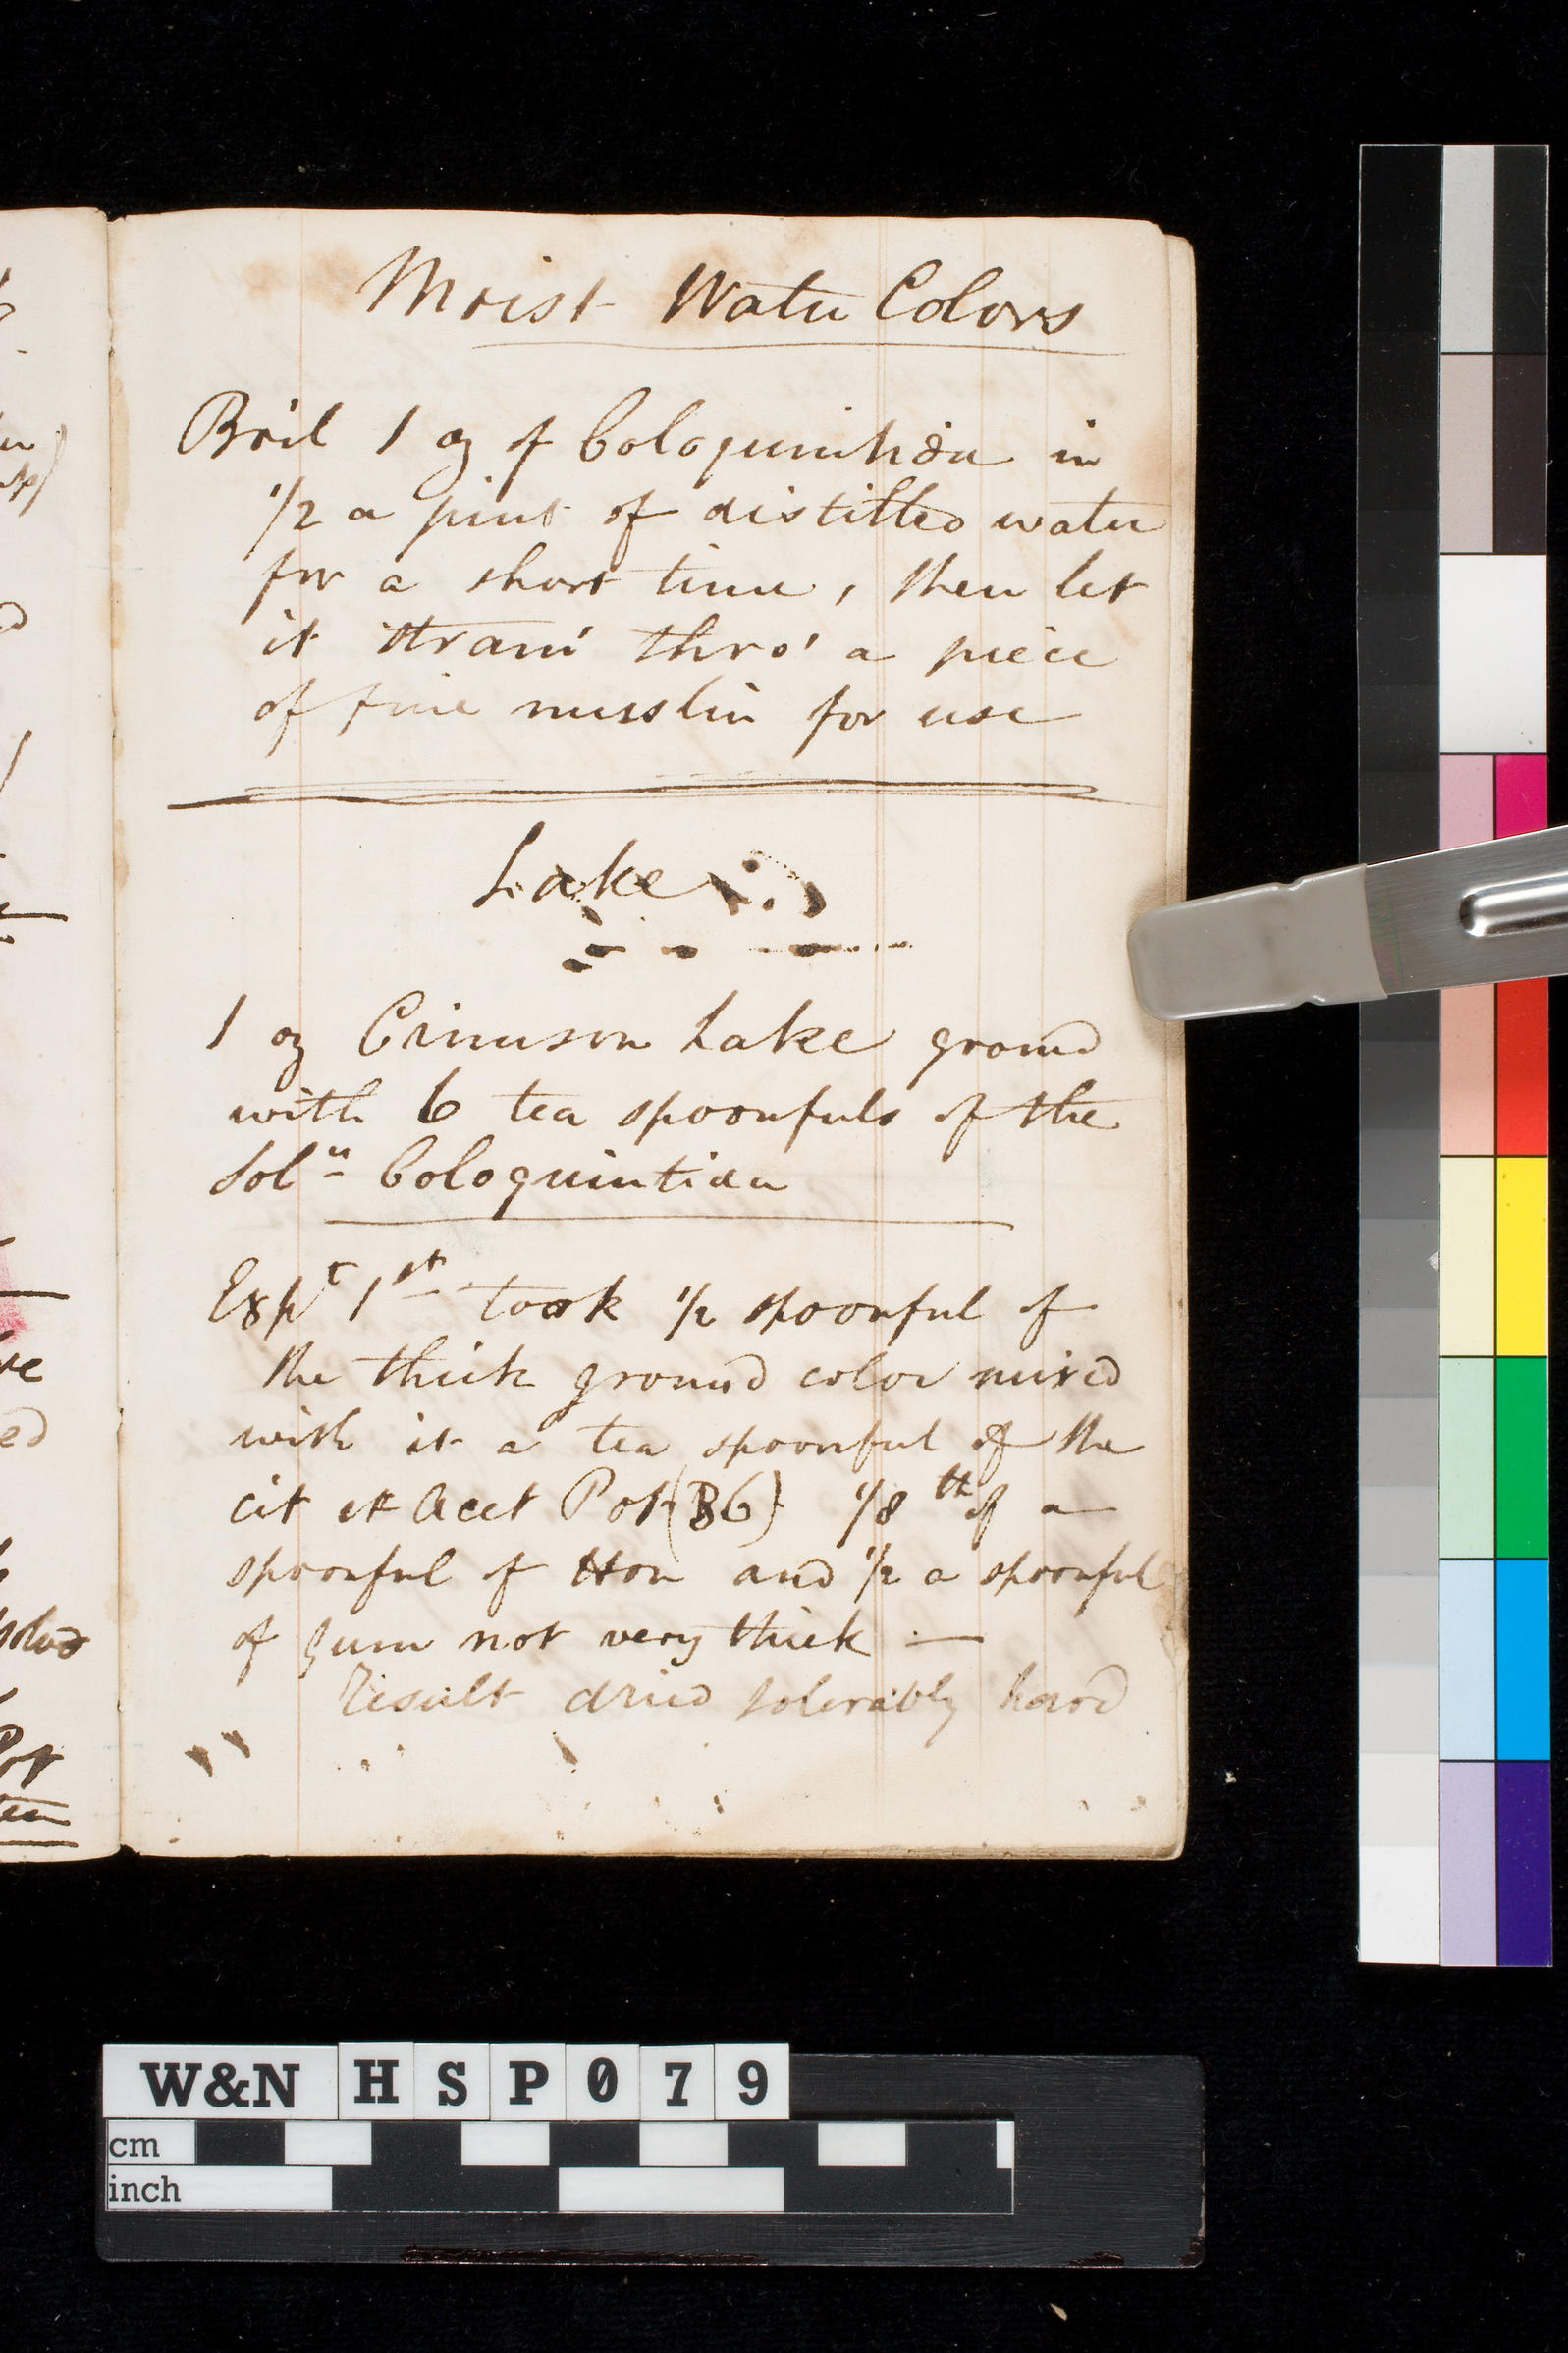 Moist Water Colors
Boil 1 oz of Coloquintida in
1/2 a pint of distilled water
for a short time, then let
it strain thro' a piece
of fine musslin for use
Lake
1 oz Crimson Lake ground
with 6 tea spoonfuls of the
Solⁿ Coloquintida
Expᵗ 1ˢᵗ took 1/2 spoonful of
the thick ground color mixed
with it a tea spoonful of the
cit et Acet Pot (B6) 1/8 ᵗʰ of a
spoonful of Hon and 1/2 a spoonful
of Gum not very thick —
Result dried tolerably hard
ve
ed
Pot
W&N HSP079
cm
inch